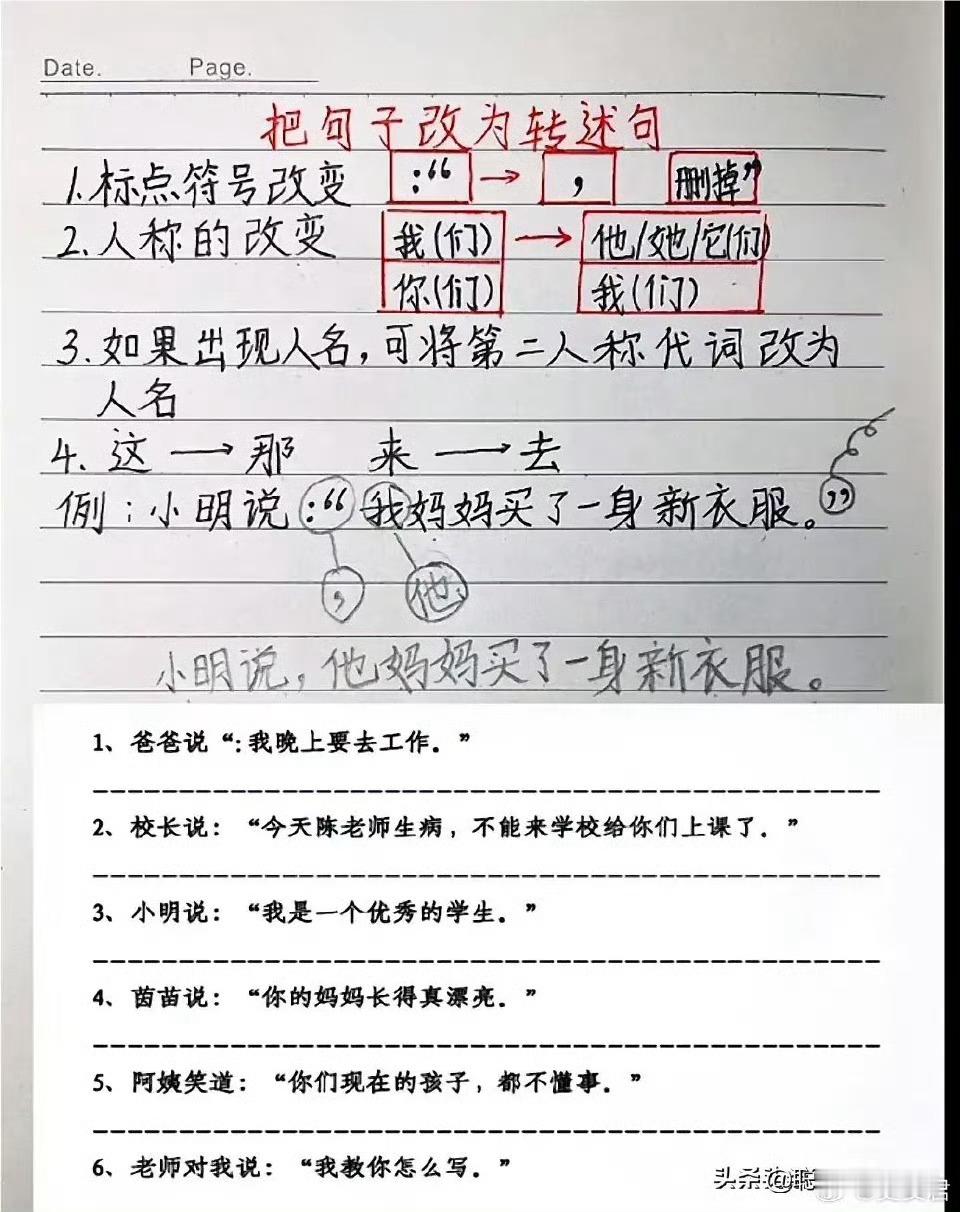 Date. Page.
把句子改为转述句
1.标点符号改变 :“ → , 删掉”
2.人称的改变 我(们) → 他/她/它(们)
你(们) 我(们)
3.如果出现人名,可将第二人称代词改为
人名
4.这→那 来→去
例:小明说:“我妈妈买了一身新衣服。”
, 他
小明说,他妈妈买了一身新衣服。
1、爸爸说“:我晚上要去工作。”
2、校长说:“今天陈老师生病,不能来学校给你们上课了。”
3、小明说:“我是一个优秀的学生。”
4、茵苗说:“你的妈妈长得真漂亮。”
5、阿姨笑道:“你们现在的孩子,都不懂事。”
6、老师对我说:“我教你怎么写。”
头条@聪